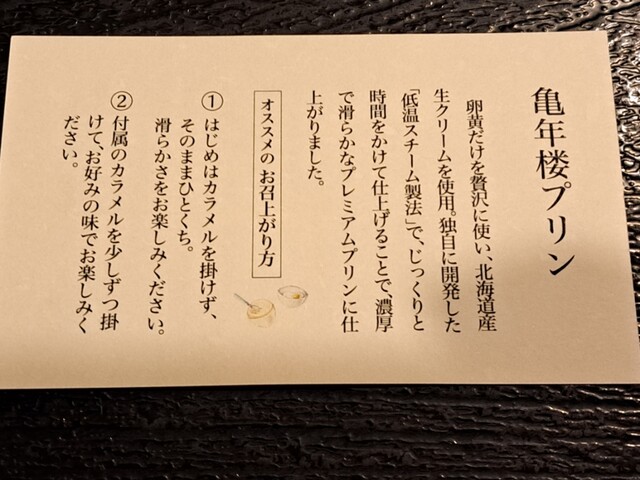 亀年楼プリン
卵黄だけを贅沢に使い、北海道産
生クリームを使用。独自に開発した
「低温スチーム製法」で、じっくりと
時間をかけて仕上げることで、濃厚
で滑らかなプレミアムプリンに仕
上がりました。
オススメの お召上がり方
① はじめはカラメルを掛けず、
そのままひとくち。
滑らかさをお楽しみください。
② 付属のカラメルを少しずつ掛
けて、お好みの味でお楽しみく
ださい。